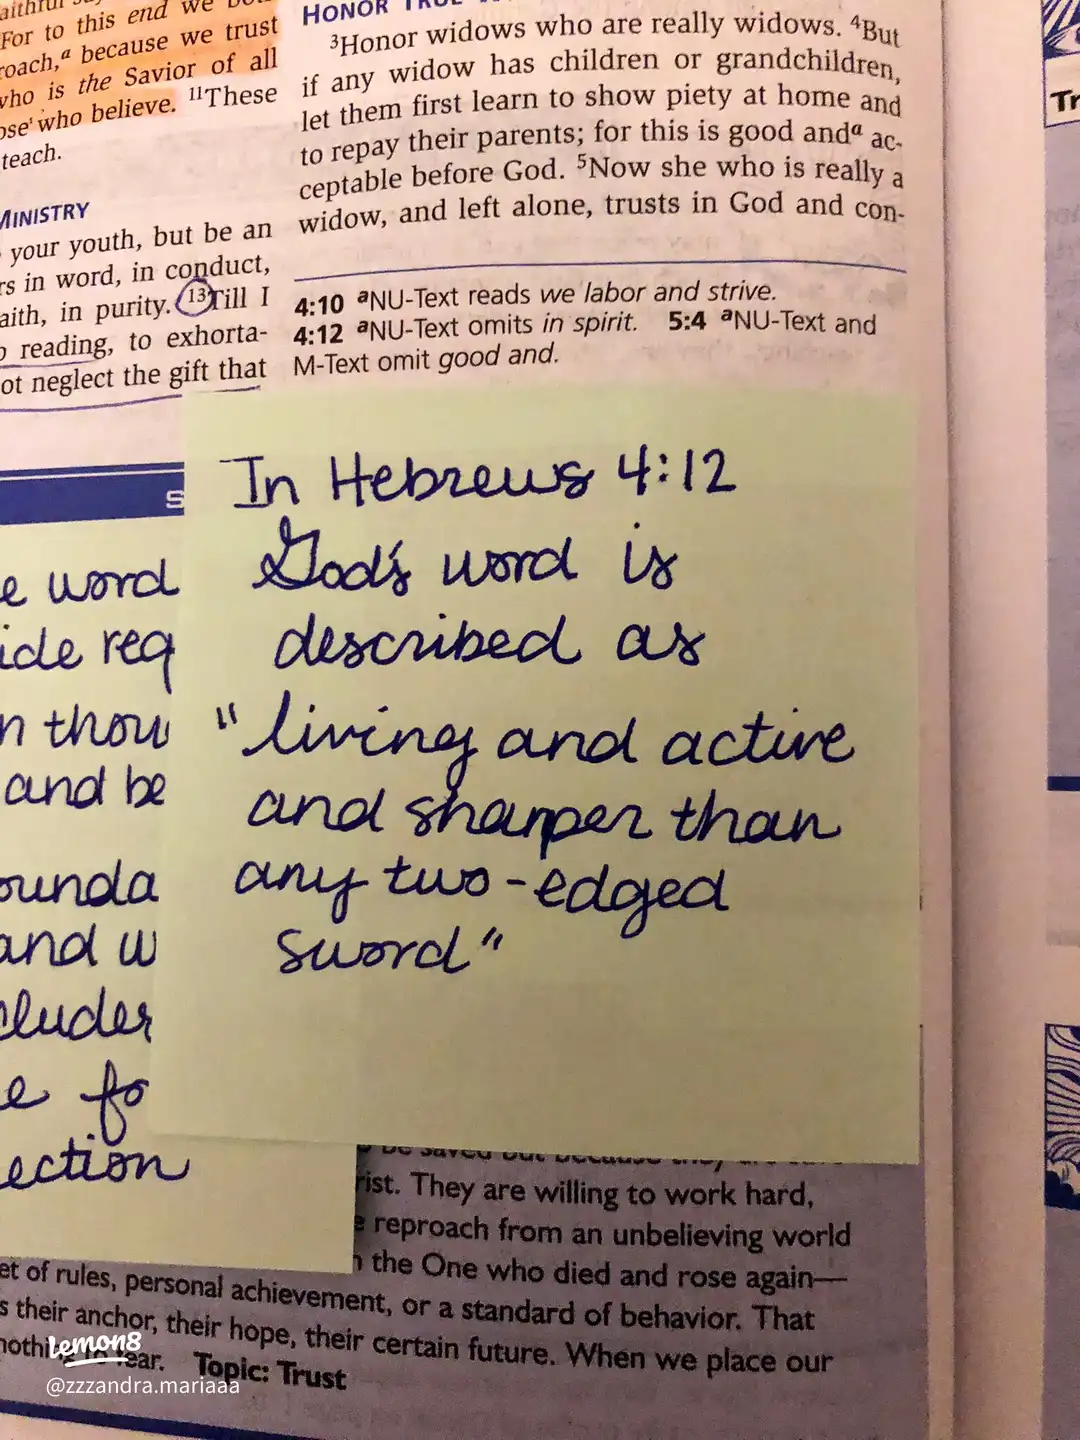 For to this end we
because we trust
who is the Savior of all
who believe. 11These
teach.
MINISTRY
your youth, but be an
in word, in conduct,
in purity. 13Till I
reading, to exhorta-
neglect the gift that
HONOR
3Honor widows who are really widows. 4But
if any widow has children or grandchildren,
let them first learn to show piety at home and
to repay their parents; for this is good anda ac-
ceptable before God. 5Now she who is really a
widow, and left alone, trusts in God and con-
4:10 aNU-Text reads we labor and strive.
4:12 aNU-Text omits in spirit. 5:4 aNU-Text and
M-Text omit good and.
word
and be
and w
ection
In Hebrews 4:12
God's word is
described as
"living and active
and sharper than
any two-edged
sword"
They are willing to work hard,
reproach from an unbelieving world
the One who died and rose again—
of rules, personal achievement, or a standard of behavior. That
their anchor, their hope, their certain future. When we place our
Topic: Trust
Lemon8
@zzzandra.mariaaa